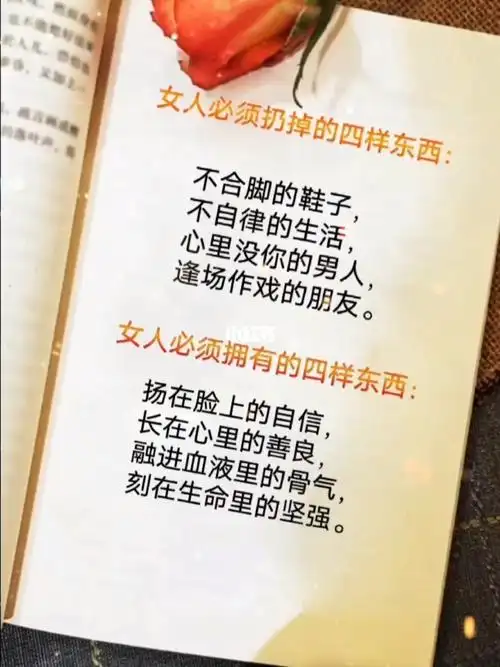 女人必须扔掉的四样东西：
不合脚的鞋子，
不自律的生活，
心里没你的男人，
逢场作戏的朋友。
小红书
女人必须拥有的四样东西：
扬在脸上的自信，
长在心里的善良，
融进血液里的骨气，
刻在生命里的坚强。